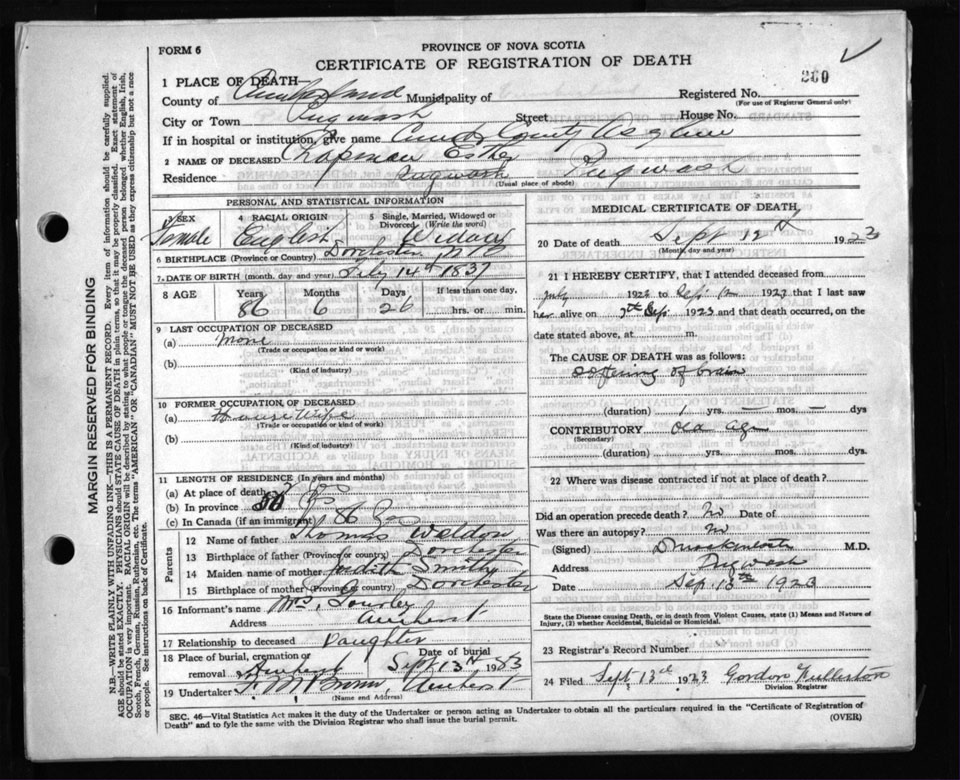 FORM 6
PROVINCE OF NOVA SCOTIA
CERTIFICATE OF REGISTRATION OF DEATH
1 PLACE OF DEATH—
County of Cumberland Municipality of Cumberland Registered No. 260
(For use of Registrar General only)
City or Town Pugwash Street House No.
If in hospital or institution, give name Cumb County Asylum
2 NAME OF DECEASED Chapman Esther
Residence Pugwash Pugwash
(Usual place of abode)
PERSONAL AND STATISTICAL INFORMATION
3 SEX 4 RACIAL ORIGIN 5 Single, Married, Widowed or Divorced (Write the word)
Female English Widow
6 BIRTHPLACE (Province or Country) Dorchester N B
7 DATE OF BIRTH (month, day and year) Feby 14th 1837
8 AGE Years Months Days If less than one day,
86 6 26 hrs. or min.
9 LAST OCCUPATION OF DECEASED
(a) None
(Trade or occupation or kind or work)
(b)
(Kind of industry)
10 FORMER OCCUPATION, OF DECEASED
(a) House Wife
(Trade or occupation or kind of work)
(b)
(Kind of industry)
11 LENGTH OF RESIDENCE (In years and months)
(a) At place of death
(b) In province
(c) In Canada (if an immigrant) 86 yrs
Parents
12 Name of father Thomas Weldon
13 Birthplace of father (Province or country) Dorchester
14 Maiden name of mother Judith Smith
15 Birthplace of mother (Province or country) Dorchester
16 Informant's name Mrs.
Address Amherst
17 Relationship to deceased Daughter
18 Place of burial, cremation or removal Amherst Date of burial Sept 13th 1923
19 Undertaker Brown Amherst
(Name and Address)
MEDICAL CERTIFICATE OF DEATH
20 Date of death Sept 12th 1923
(Month, day and year)
21 I HEREBY CERTIFY, that I attended deceased from
July 1923 to Sept 12 1923 that I last saw
her alive on 7th Sep. 1923 and that death occurred, on the
date stated above, at m.
The CAUSE OF DEATH was as follows:
Softening of brain
(duration) 1 yrs. — mos. — dys
CONTRIBUTORY Old age
(Secondary)
(duration) yrs. mos. dys.
22 Where was disease contracted if not at place of death?
Did an operation precede death? No Date of
Was there an autopsy? No
(Signed) M.D.
Address Pugwash
Date Sep. 13th 1923
State the Disease causing Death, or in deaths from Violent Causes, state (1) Means and Nature of Injury, (2) whether Accidental, Suicidal or Homicidal.
23 Registrar's Record Number
24 Filed Sept 13th 1923 Gordon
Division Registrar
SEC. 46—Vital Statistics Act makes it the duty of the Undertaker or person acting as Undertaker to obtain all the particulars required in the "Certificate of Registration of
Death" and to fyle the same with the Division Registrar who shall issue the burial permit.
(OVER)
MARGIN RESERVED FOR BINDING
N.B.—WRITE PLAINLY WITH UNFADING INK—THIS IS A PERMANENT RECORD. Every item of information should be carefully supplied.
AGE should be stated EXACTLY. PHYSICIANS should STATE CAUSE OF DEATH in plain terms, so that it may be properly classified. Exact statement of
OCCUPATION is very important. RACIAL ORIGIN will be described by stating to what people or tongue the deceased person belonged whether English, Irish,
Scotch, French, German, Russian, Ruthenian, etc. The terms "AMERICAN" OR "CANADIAN" MUST NOT BE USED as they express citizenship but not a race
or people. See instructions on back of Certificate.